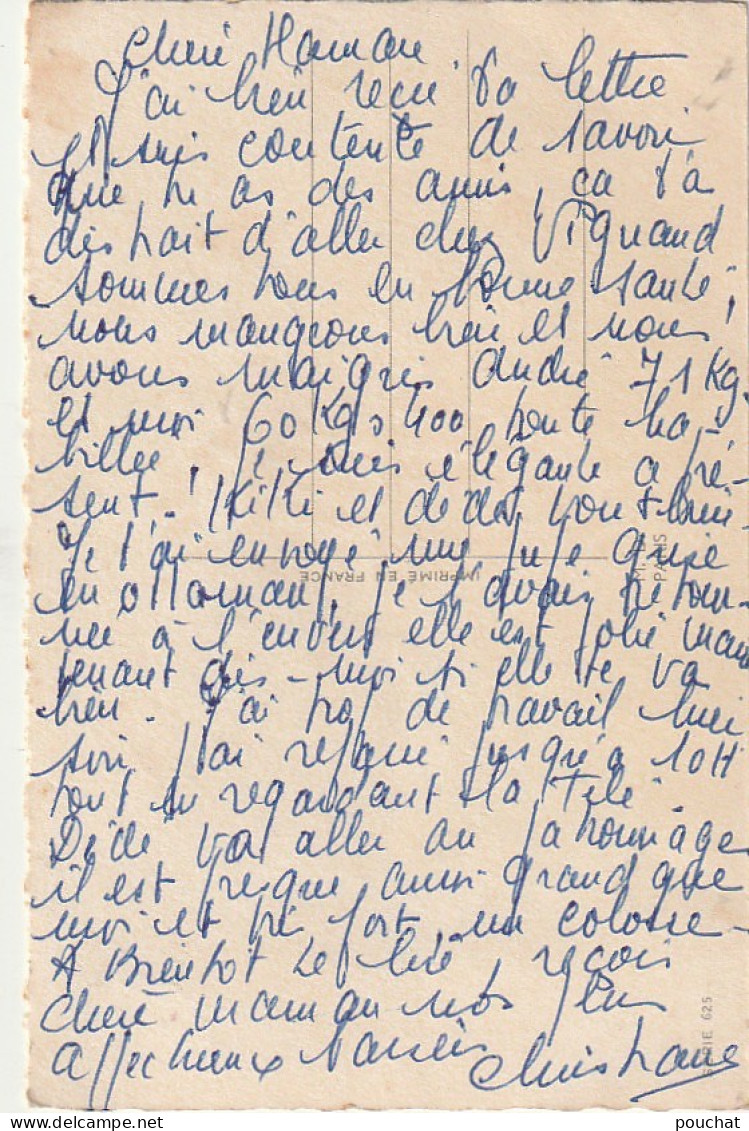 Cheré Maman
J'ai bien reçu ta lettre
et suis contente de savoir
que tu as des amis, ça t'a
distrait d'aller chez Viguand
sommes tous en bonne santé,
nous mangeons bien et nous
avons maigris André 71 Kg,
et moi 60 Kgs 400 toute ha-
billée, je suis élégante a pré-
sent! Kiki et dédé vont bien
Je t'ai envoyé une jupe grise
en ottoman, je l'avais retour-
née à l'envers elle est jolie main
tenant dis-moi si elle te va
bien. J'ai trop de travail hier
soir j'ai repassé jusqu'à 10H
tout en regardant la Télé.
Dédé va aller au patronage
il est presque aussi grand que
moi et très fort, un colosse
A Bientot te lire, reçois
cheré maman nos plus
affectueux baisers
Christiane
IMPRIMÉ EN FRANCE
PARIS
SÉRIE 625
pouchat